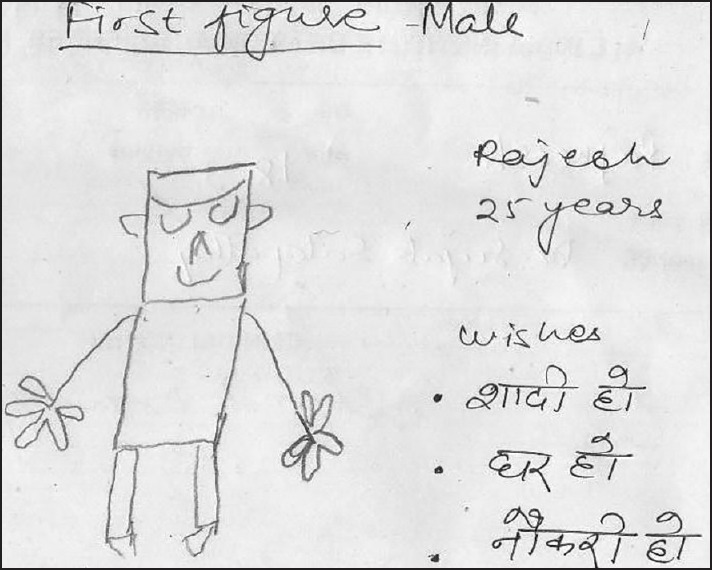 First figure - Male
Rajesh
25 years
wishes
• शादी हो
• घर हो
• नौकरी हो